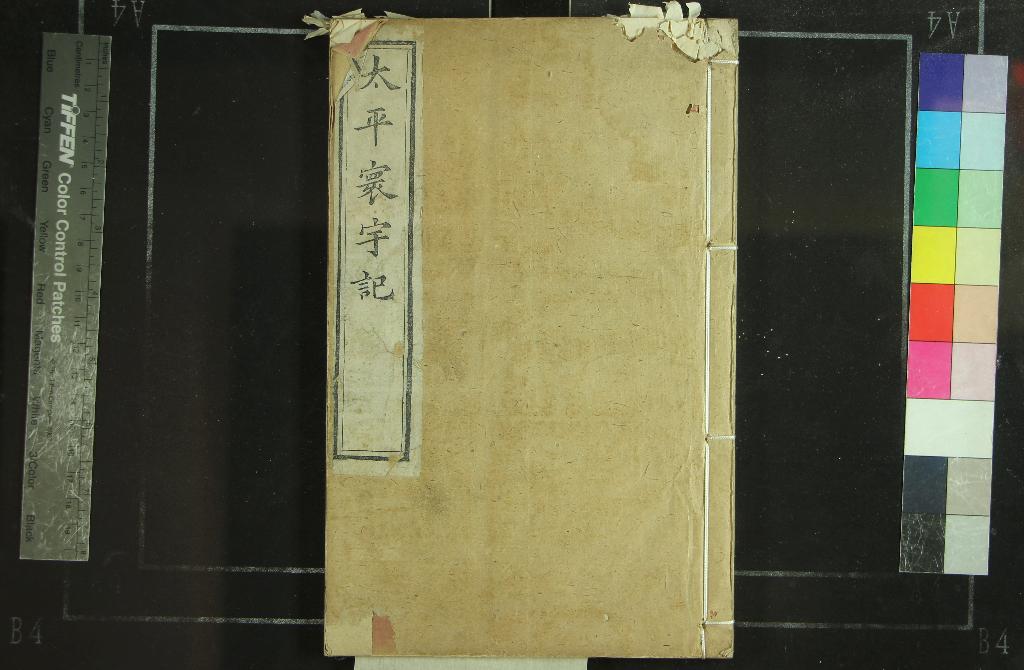 太平寰宇記
A4
A4
B4
B4
Inches
Centimetres
TIFFEN Color Control Patches
Blue
Cyan
Green
Yellow
Red
Magenta
White
3/Color
Black